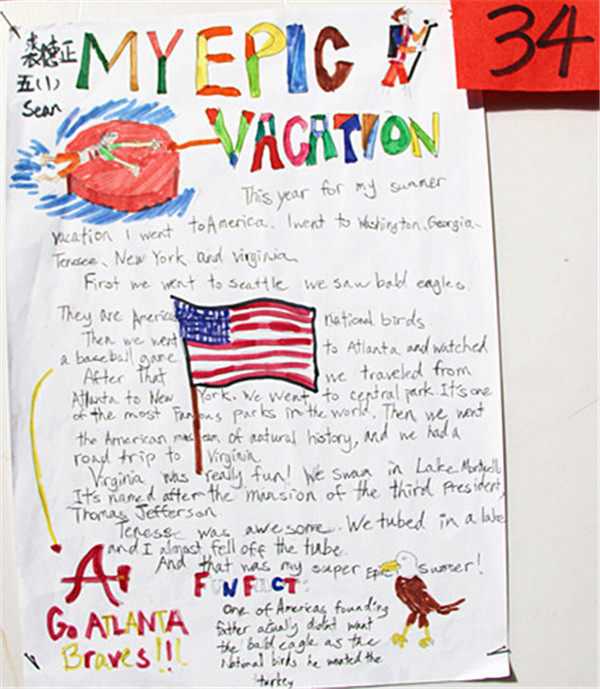 34
裘德正
五(1)
Sean
MY EPIC
VACATION
This year for my summer
vacation I went to America. I went to Washington, Georgia,
Tenesee, New York and virginia.
First we went to seattle we saw bald eagles.
They are America national birds
Then we went to Atlanta and watched
a baseball game
After That we traveled from
Atlanta to New York. We went to central park. It's one
of the most Famous parks in the world. Then we went
the American museem of natural history, and we had a
road trip to Virginia.
Virginia was really fun! We swam in Lake Monticell
It's named after the mansion of the third President,
Thomas Jefferson
Tenesse was awesome. We tubed in a lake
and I almost fell off the tube.
And that was my super Epic summer!
A
Go ATLANTA
Braves!!!
FUN FACT:
One of Americas founding
father actually didnt want
the bald eagle as the
National birds he wanted the
turkey